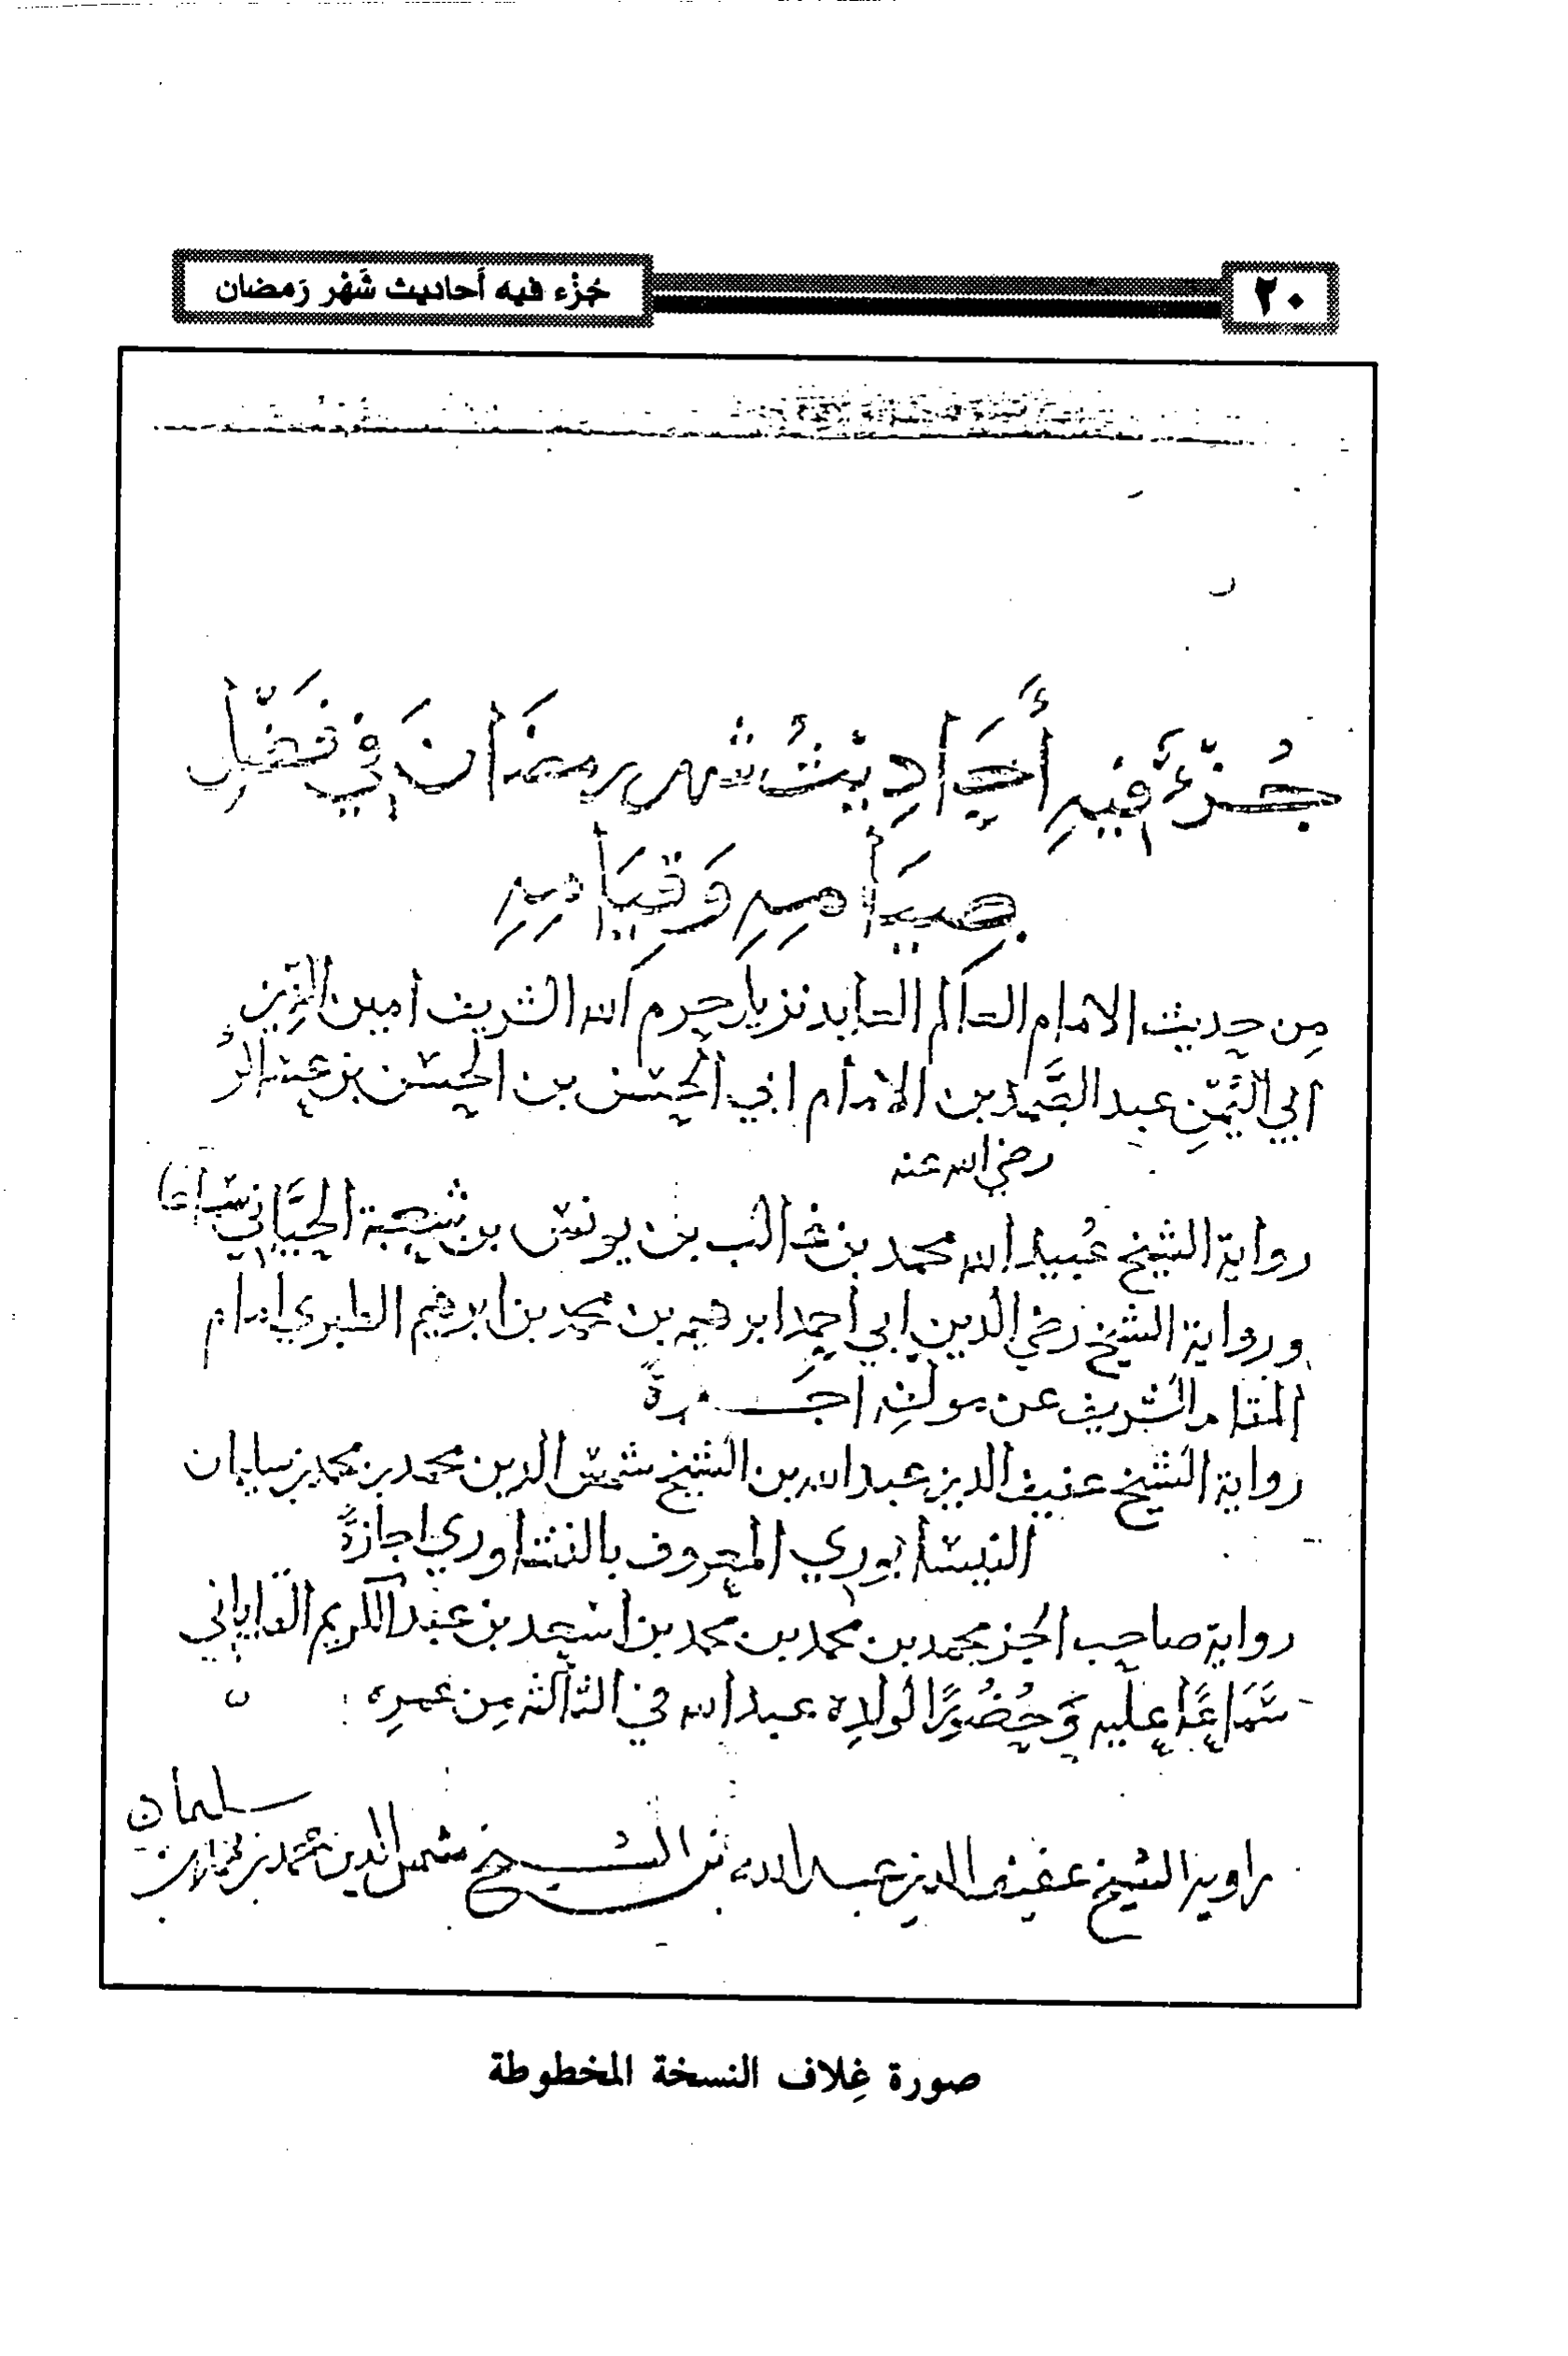 ٢٠
جُزْء فيه أَحاديث شَهْر رَمضان
جُزْءٌ فِيهِ أَحَادِيْثُ شهر رمضَانَ فِي فَضْلِ
صِيَامِهِ وَقِيَامِهِ
مِن حديث الامام العالم العابد نزيل حرم الله الشريف امين الدين
ابي اليُمْنِ عبد الصَّمد بن الامام ابي الحسن بن الحسن بن
رضي الله عنه
رواية الشيخ عُبيد الله محمد بن غالب بن يونس بن شعبة الجَيَّاني سماعا
ورواية الشيخ رضي الدين ابي أحمد ابرهيم بن محمد بن ابرهيم الطبري امام
المقام الشريف عن مولفِه اجَازةً
رواية الشيخ عفيف الدين عبد الله بن الشيخ شمس الدين محمد بن محمد بن سليمان
النيسابوري المعروف بالنشاوري اجازةً
رواية صاحب الجز محمد بن محمد بن محمد بن اسعد بن عبد الكريم القاياتي
سَمَاعًا عليه وَحُضُورًا لولدِه عبد الله في الثالثه مِن عمرِه
سليمان
راويه الشيخ عفيف الدين عبد الله بن الشيخ شمس الدين محمد بن محمد بن
صورة غِلاف النسخة المخطوطة